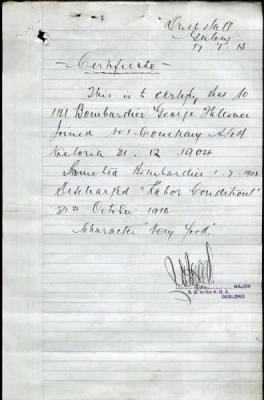 Drill Hall
Geelong
17 . 1 . 13
— Certificate —
This is to certify that No
1181 Bombardier George Falloner
joined No 1 Company AGA
Victoria 21 . 12 . 1904
Promoted Bombardier 1 . 7 . 1909
Discharged "Labor Conditions"
31st October 1910
Character "Very Good"
MAJOR
GEELONG